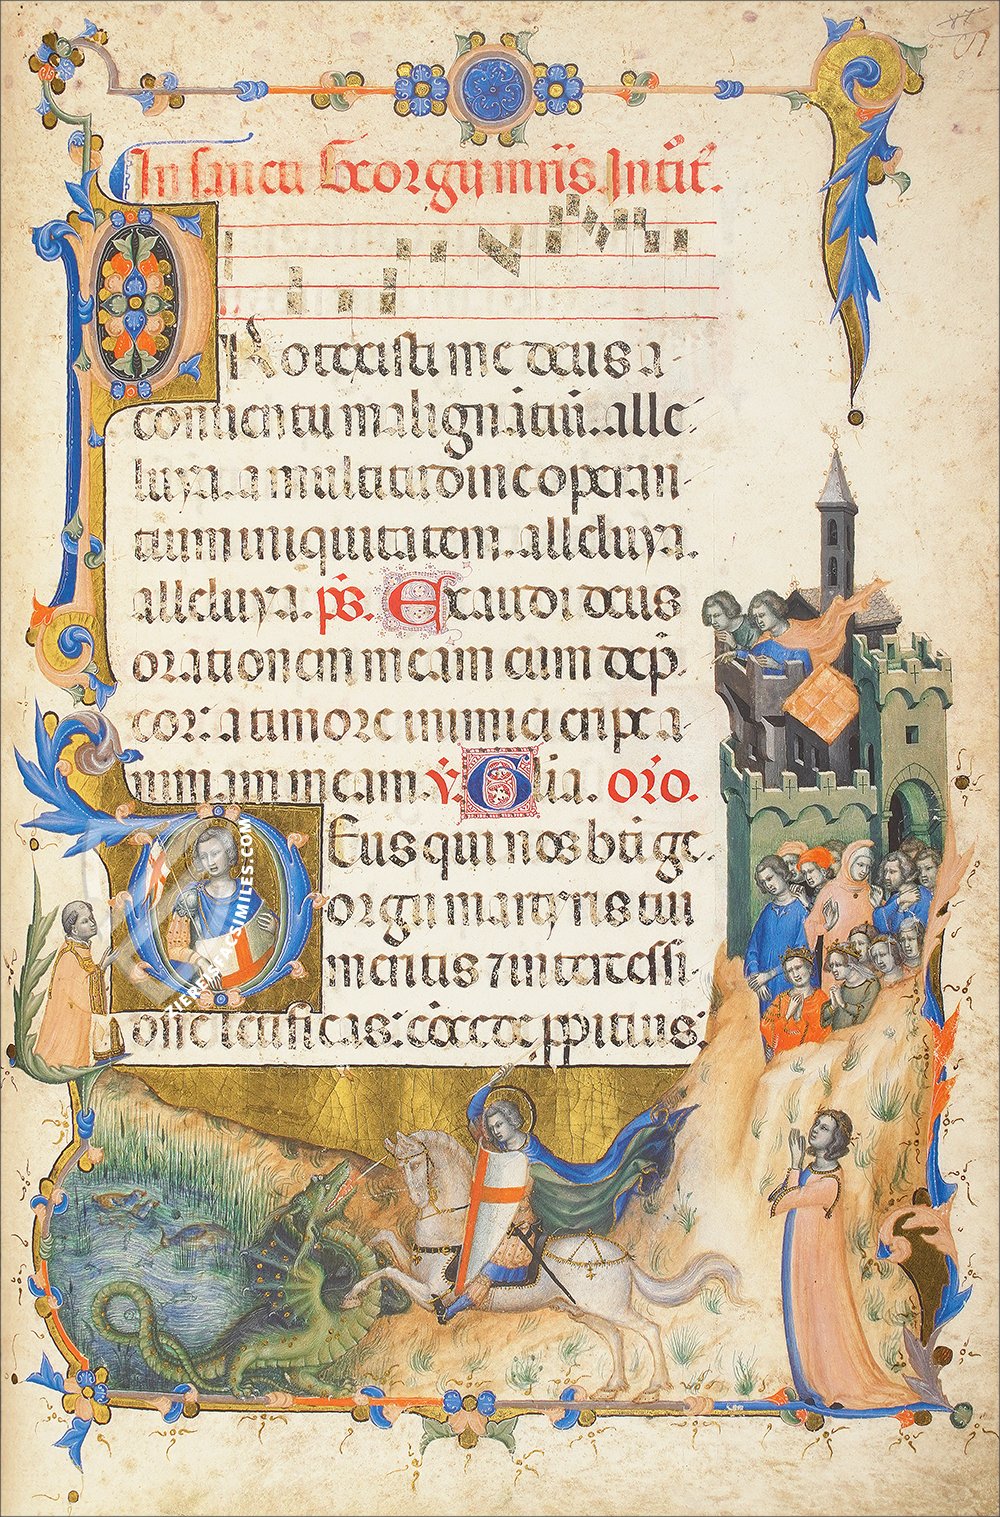 87
In sancti Georgii mris Introit.
PRotexisti me deus a
conuentu malignātiū. alle-
luya. a multitudine operan-
tium iniquitatem. alleluya.
alleluya. ps. Exaudi deus
orationem meam cum dep̄-
cor: a timore inimici eripe a-
nimam meam. v. Glia. oro.
DEus qui nos bti ge-
orgii martyris tui
meritis ⁊ intercessi-
one letificas: concede ppitius:
ZIEREIS FACSIMILES.COM